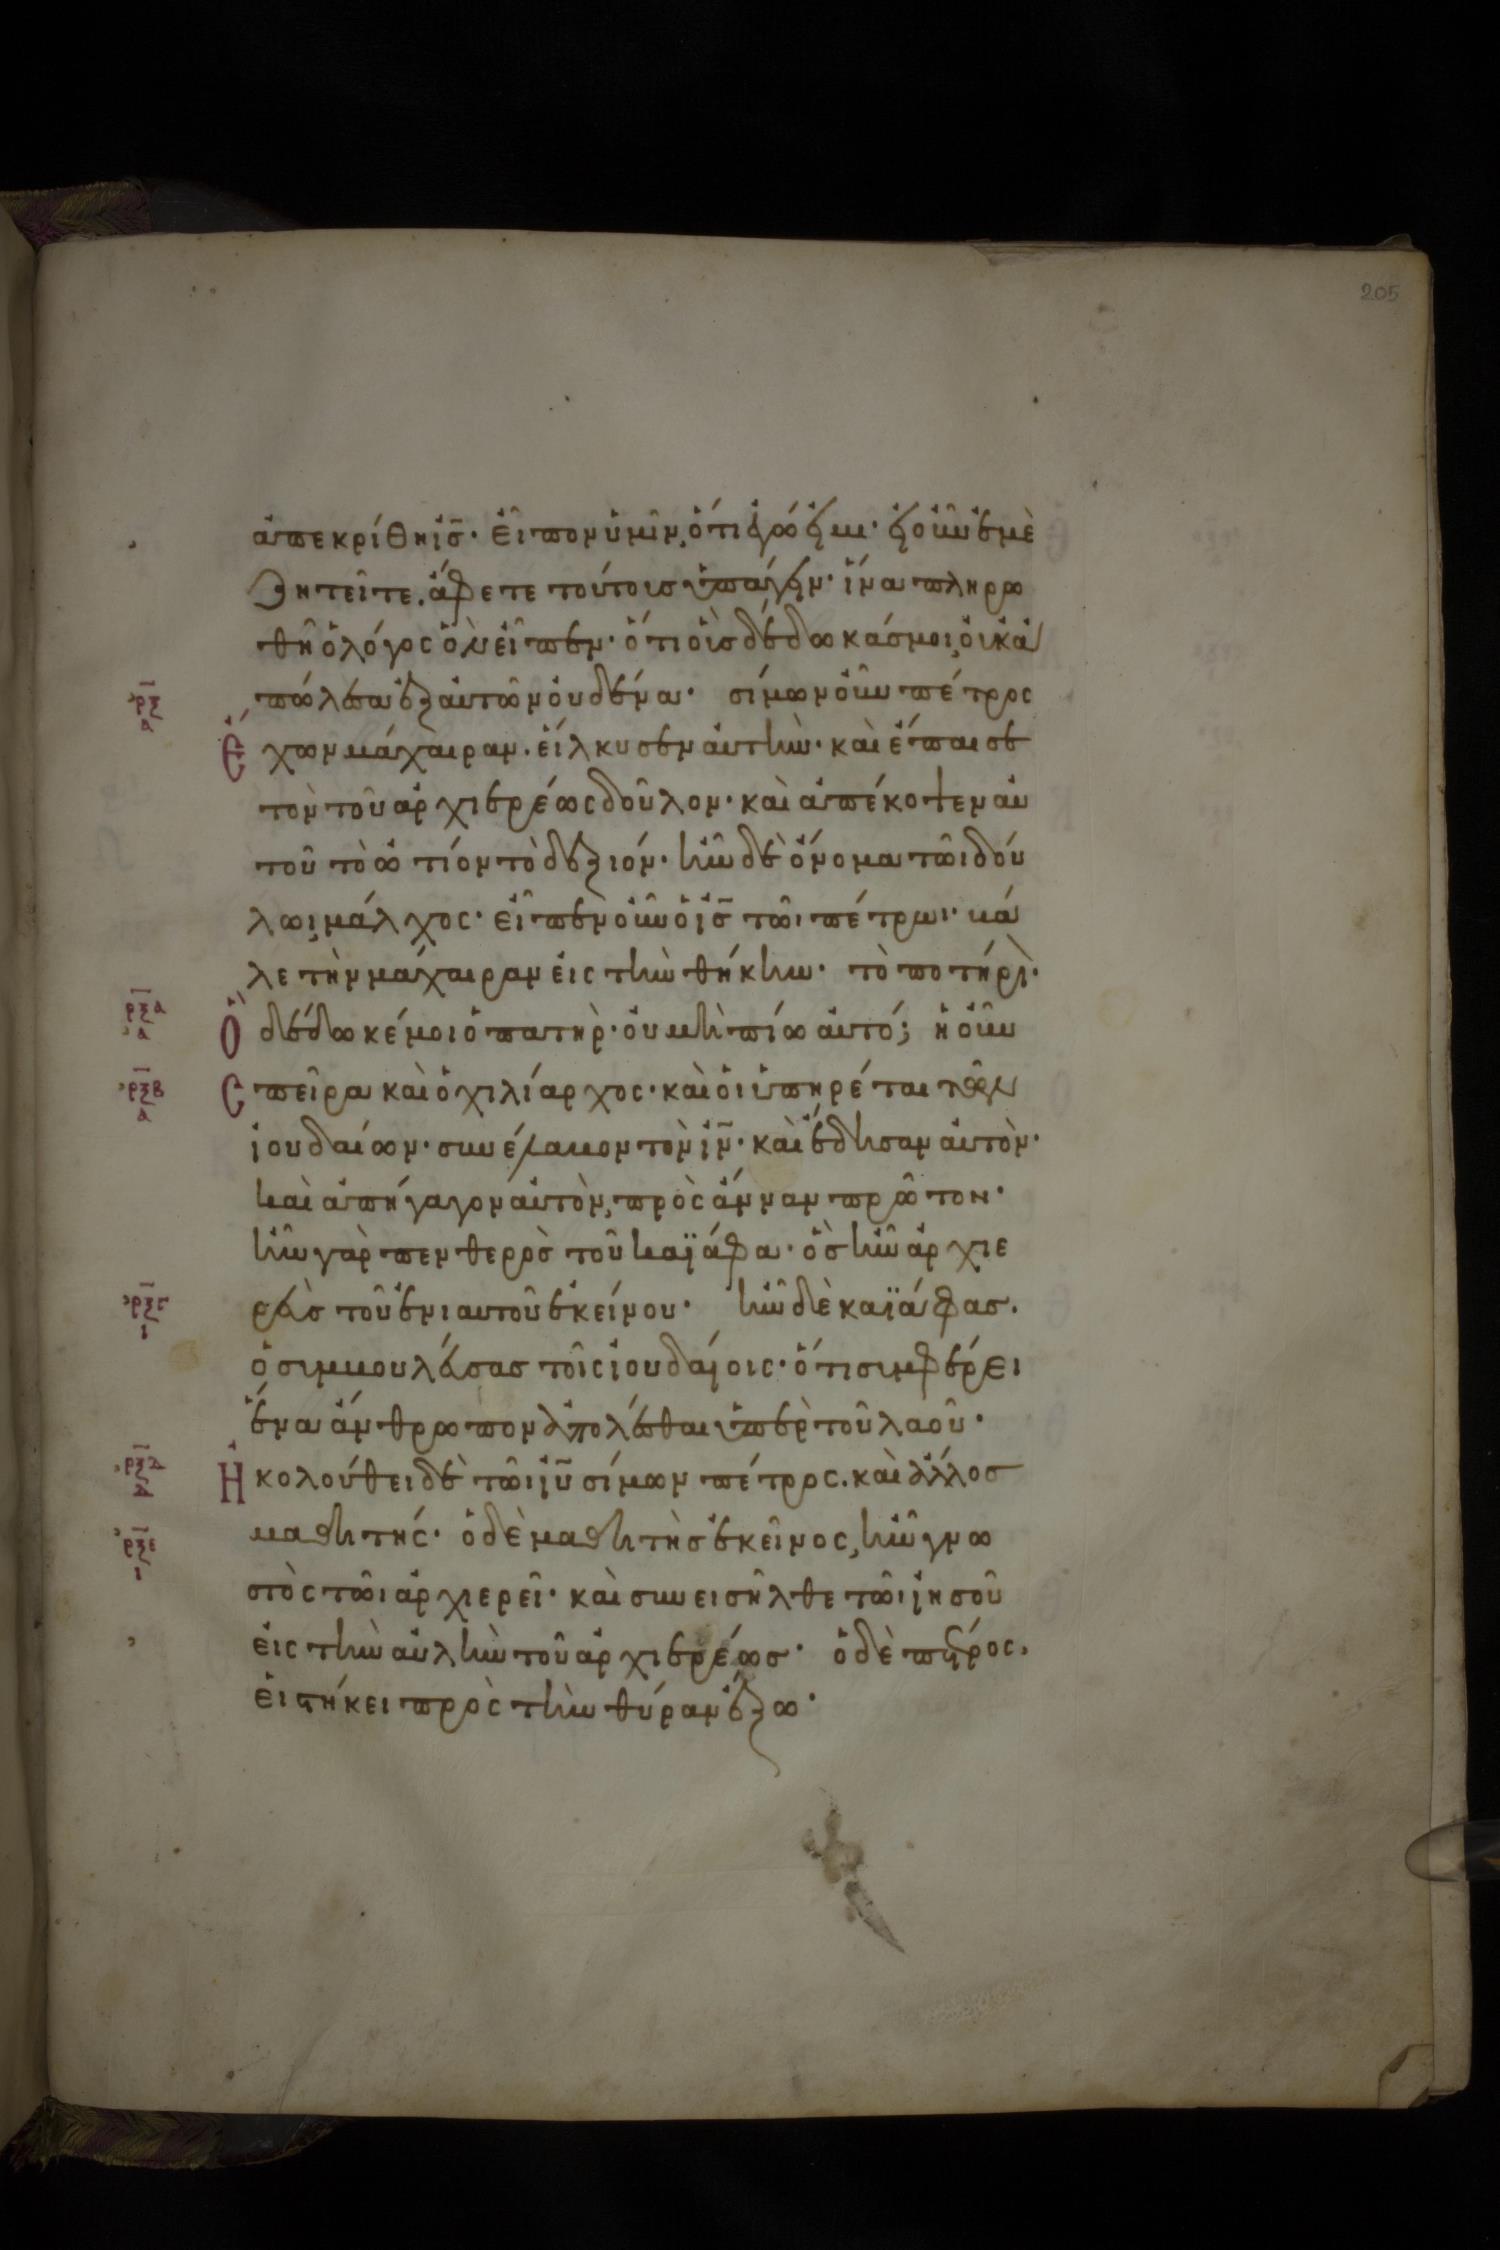 205
ἀπεκρίθη ἰς̄· εἶπον ὑμῖν, ὅτι ἐγώ εἰμι· εἰ οὖν ἐμὲ
ζητεῖτε. ἄφετε τούτους ὑπάγειν· ἵνα πληρω
θῆ ὁ λόγος ὃν εἶπεν· ὅτι οὓς δέδωκάς μοι, οὐκ ἀ
πώλεσα ἐξ αὐτῶν οὐδένα· σίμων οὖν πέτρος
ρξ α
Ἔχων μάχαιραν. εἵλκυσεν αὐτὴν· καὶ ἔπαισε
τὸν τοῦ ἀρχιερέως δοῦλον· καὶ ἀπέκοψεν αὐ
τοῦ τὸ ὠτίον τὸ δεξιόν· ἦν δὲ ὄνομα τῶι δού
λωι, μάλχος· εἶπεν οὖν ὁ ἰς̄ τῶι πέτρωι· βά
λε τὴν μάχαιραν εἰς τὴν θήκην· τὸ ποτήρι·
ρξα α
Ὃ δέδωκέ μοι ὁ πατὴρ· οὐ μὴ πίω αὐτό; ἡ οὖν
ρξβ α
Σπεῖρα καὶ ὁ χιλίαρχος· καὶ οἱ ὑπηρέται τῶν
ἰουδαίων· συνέλαβον τὸν ἰν̄· καὶ ἔδησαν αὐτὸν·
καὶ ἀπήγαγον αὐτὸν, πρὸς ἄνναν πρῶτον·
ἦν γὰρ πενθερὸς τοῦ καϊάφα· ὃς ἦν ἀρχιε
ρεὺς τοῦ ἐνιαυτοῦ ἐκείνου· ἦν δὲ καϊάφας.
ρξγ ι
ὁ συμβουλεύσας τοῖς ἰουδαίοις· ὅτι συμφέρει
ἕνα ἄνθρωπον ἀπολέσθαι ὑπὲρ τοῦ λαοῦ·
ρξδ α
Ἠκολούθει δὲ τῶι ἰῡ σίμων πέτρος. καὶ ἄλλος
μαθητής· ὁ δὲ μαθητὴς ἐκεῖνος, ἦν γνω
ρξε ι
στὸς τῶι ἀρχιερεῖ· καὶ συνεισῆλθε τῶι ἰησοῦ
εἰς τὴν αὐλὴν τοῦ ἀρχιερέως· ὁ δὲ πέτρος,
εἱστήκει πρὸς τὴν θύραν ἔξω·